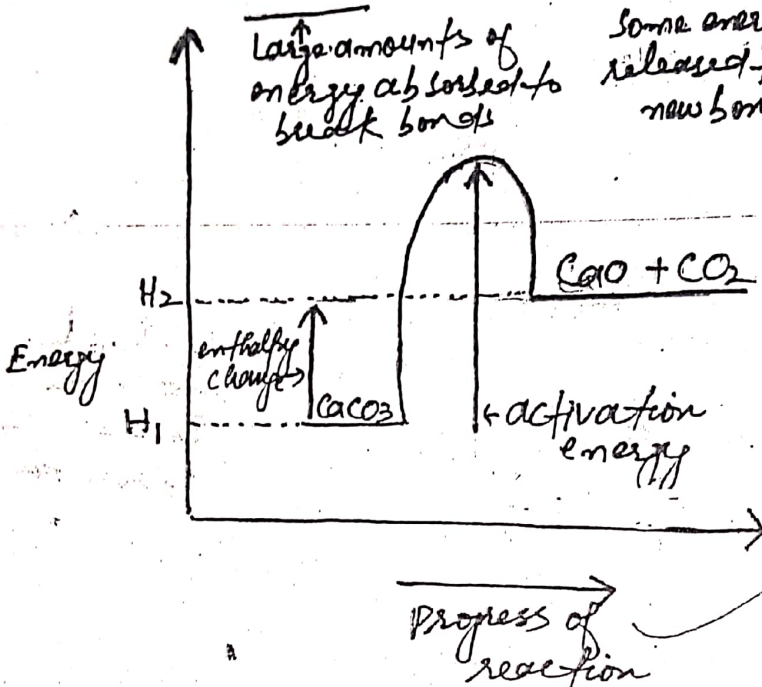 Large amounts of
energy absorbed to
break bonds
Some
released
new
CaO + CO2
H2
Energy
enthalpy
change
CaCO3
H1
activation
energy
Progress of
reaction